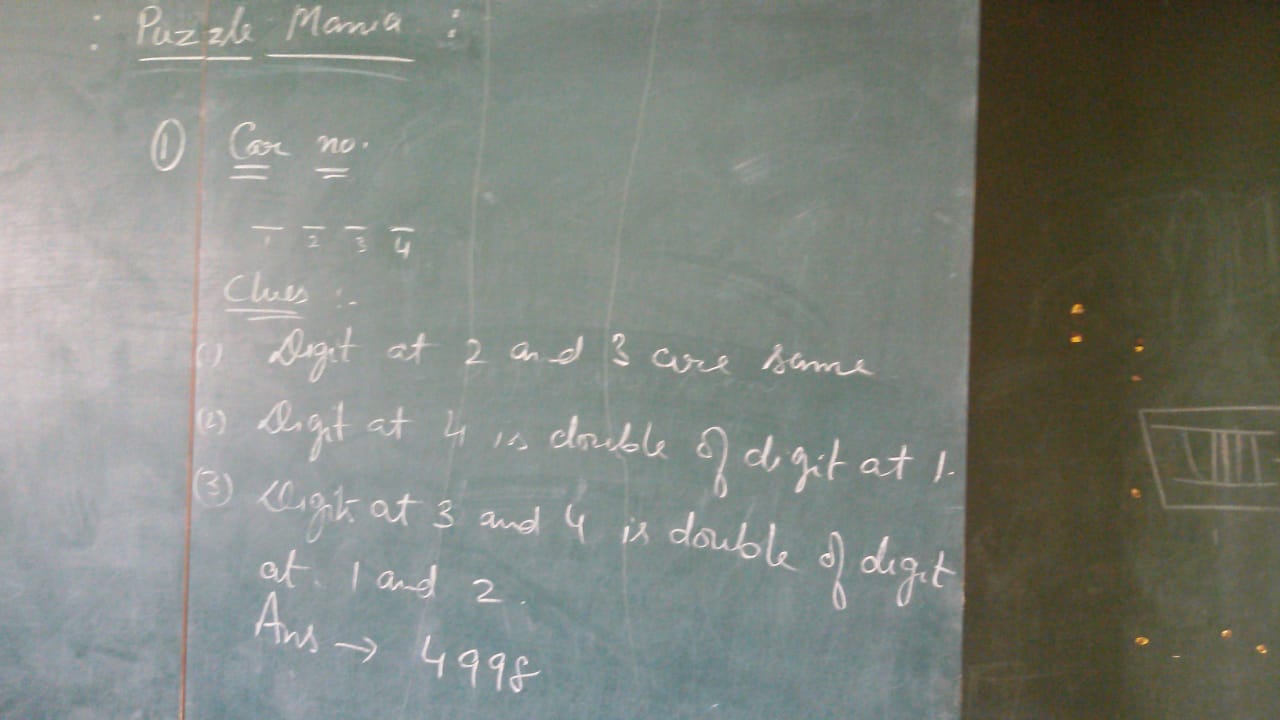 : Puzzle Mania :
① Car no.
_ _ _ _
1 2 3 4
Clues :-
(1) Digit at 2 and 3 are same
(2) Digit at 4 is double of digit at 1.
(3) Digit at 3 and 4 is double of digit
at 1 and 2.
Ans → 4998